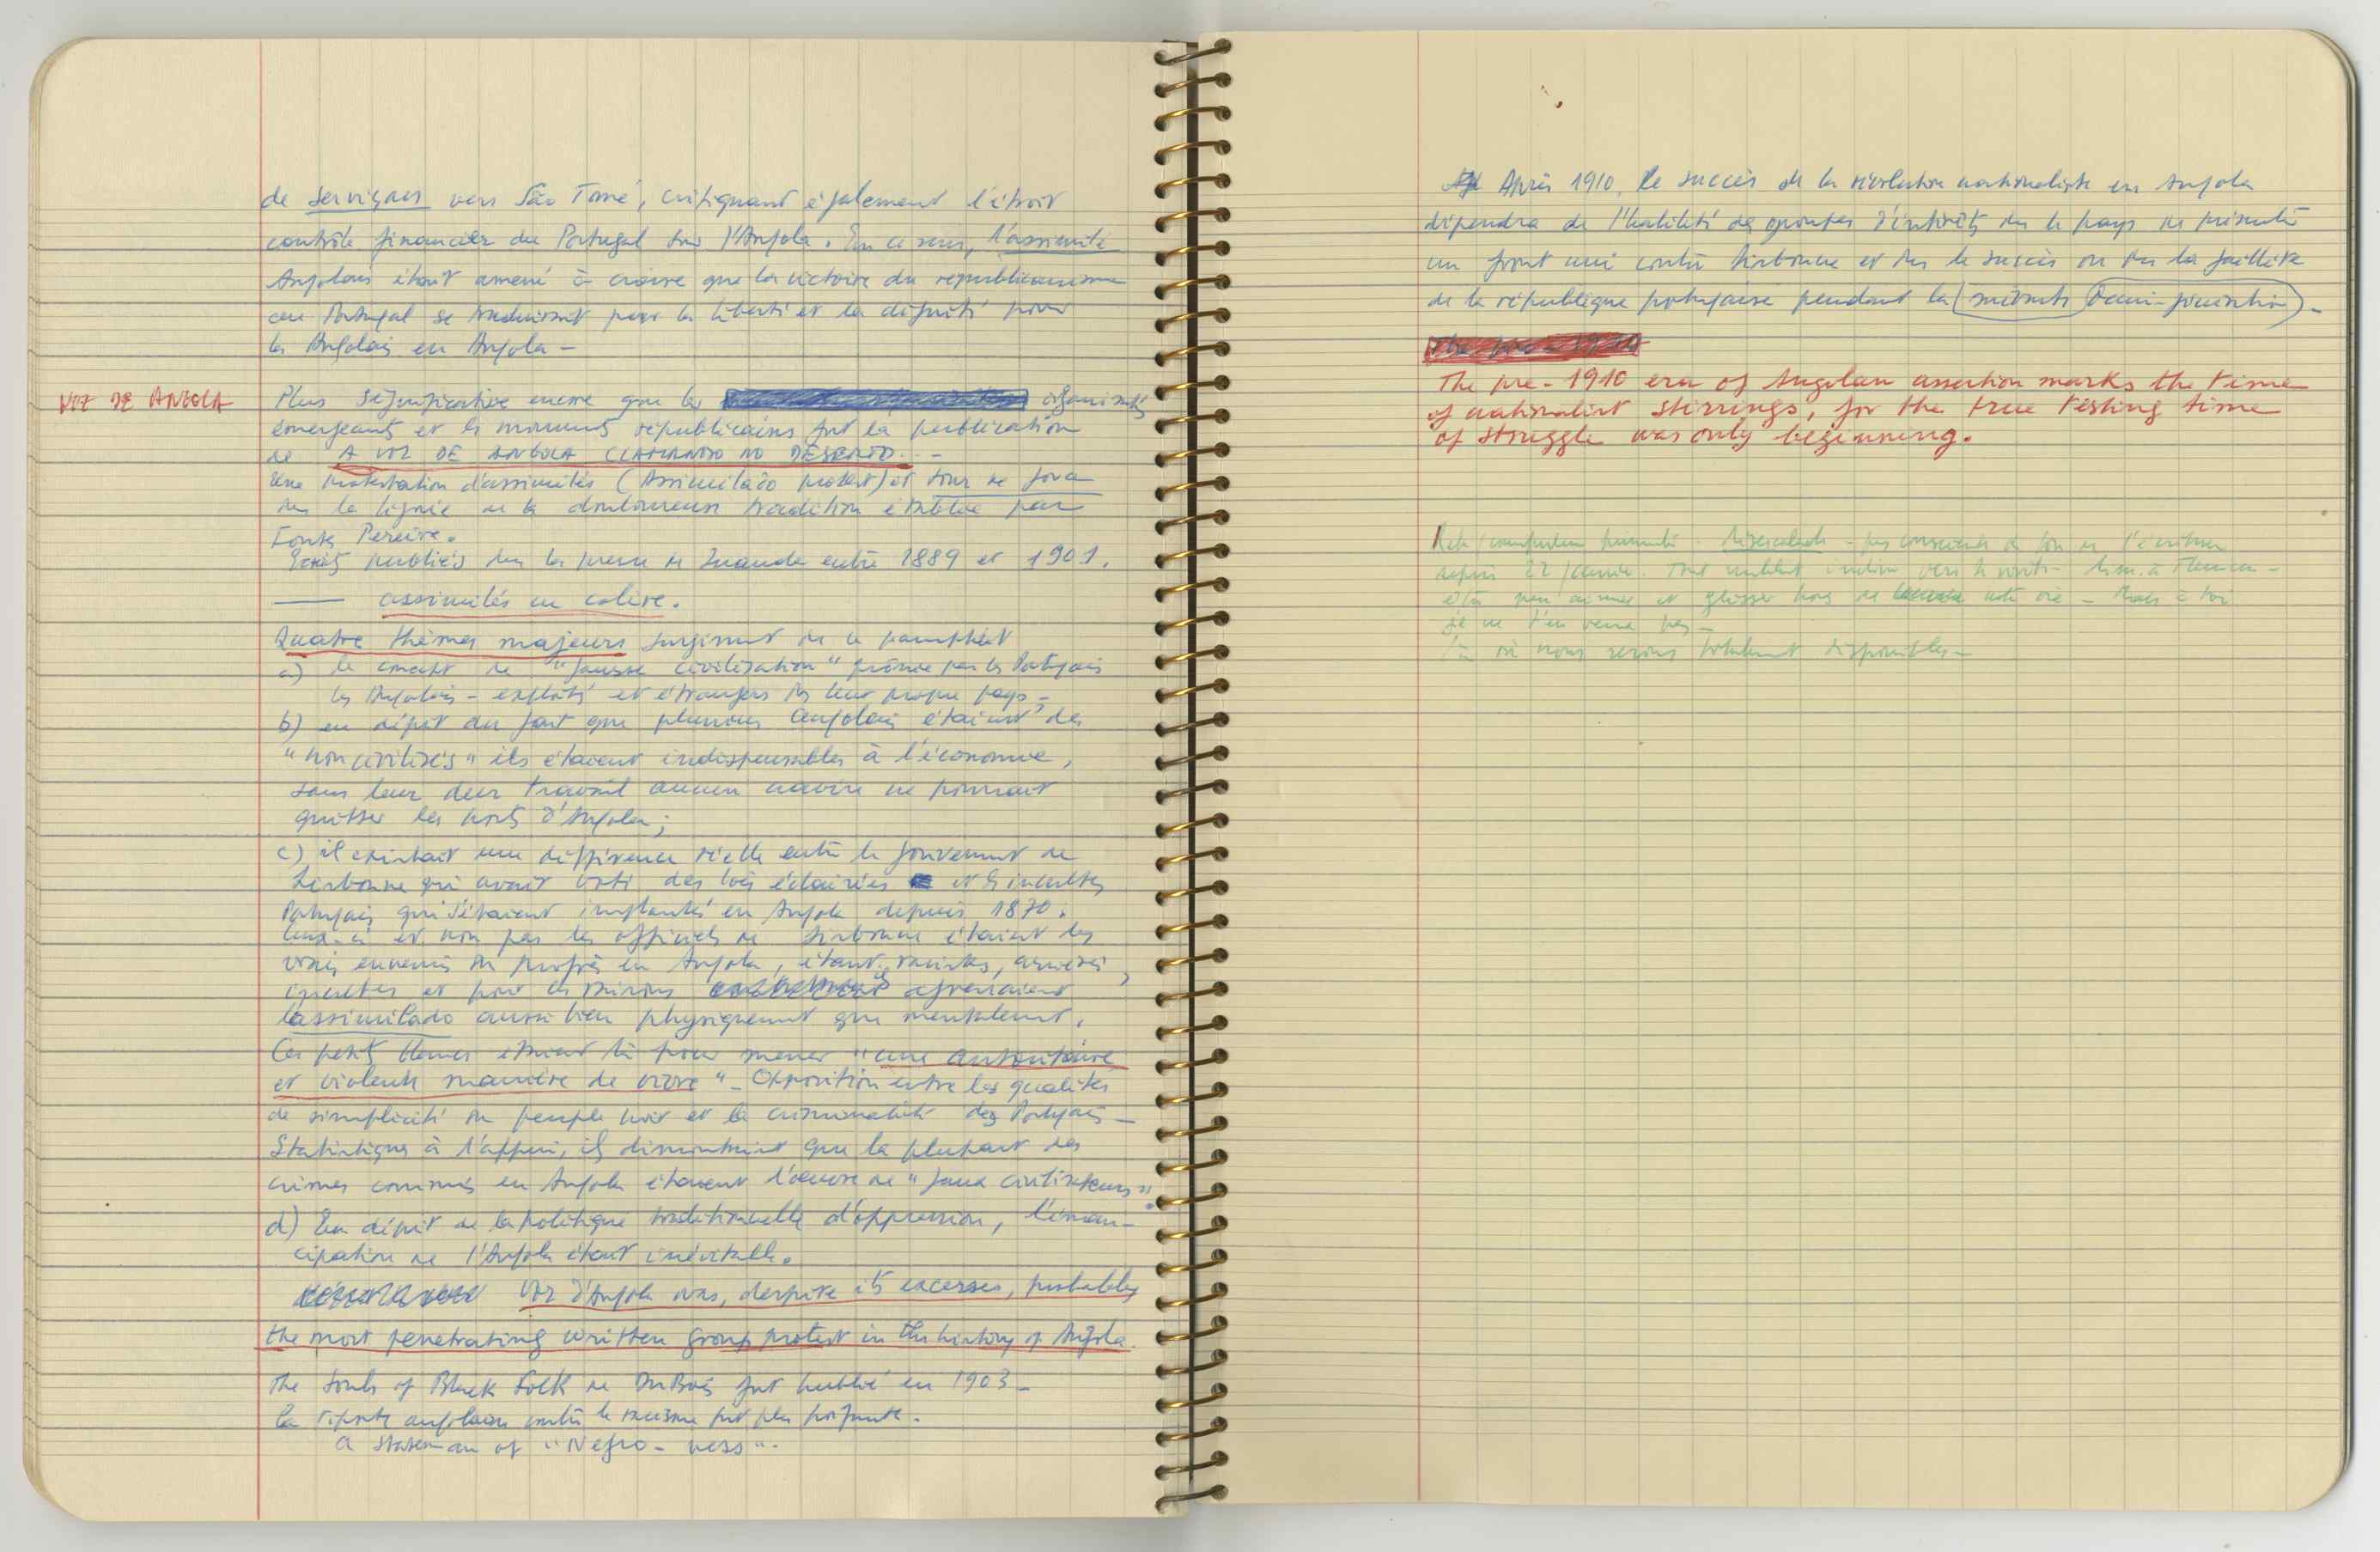 de serviçaes vers São Tomé, critiquant également l'étroit
contrôle financier du Portugal sur l'Angola. En ce sens, l'assimilé
Angolais était amené à croire que la victoire du républicanisme
au Portugal se traduirait par la liberté et la dignité pour
les Angolais en Angola -
VOZ DE ANGOLA
Plus significative encore que les organismes
émergeants et les mouvements républicains fut la publication
de A VOZ DE ANGOLA CLAMANDO NO DESERTO. -
Une protestation d'assimilés (Assimilado protest) et tour de force
dans la lignée de la douloureuse tradition établie par
Fontes Pereira.
Ecrits publiés dans la presse de Luanda entre 1889 et 1901.
— assimilés en colère.
Quatre thèmes majeurs surgissent de ce pamphlet
a) le concept de "fausse civilisation" prônée par les Portugais
les Angolais - exploités et étrangers ds leur propre pays -
b) en dépit du fait que plusieurs angolais étaient des
"non civilisés" ils étaient indispensables à l'économie,
sans leur dur travail aucun navire ne pourrait
quitter les ports d'Angola;
c) il existait une différence réelle entre le gouvernement de
Lisbonne qui avait voté des lois éclairées et les incultes
Portugais qui s'étaient implantés en Angola depuis 1870.
Ceux-ci et non pas les officiels de Lisbonne étaient les
vrais ennemis du progrès en Angola, étant racistes, arriérés,
incultes et pour ces raisons agressaient
l'assimilado aussi bien physiquement que mentalement.
Ces petits blancs étaient là pour mener "une autoritaire
et violente manière de vivre" - Opposition entre les qualités
de simplicité du peuple noir et la criminalité des Portugais -
Statistiques à l'appui, ils démontraient que la plupart des
crimes commis en Angola étaient l'oeuvre de "faux civilisateurs".
d) En dépit de la politique traditionnelle d'oppression, l'éman-
cipation de l'Angola était inévitable.
Voz d'Angola was, despite its excesses, probably
the most penetrating written group protest in the history of Angola.
The Souls of Black Folk de DuBois fut publié en 1903 -
la riposte angolaise contre le racisme fut plus profonde.
a statement of "Negro-ness".
Après 1910, le succès de la révolution nationaliste en Angola
dépendra de l'habilité des groupes d'intérêts dans le pays de présenter
un front uni contre Lisbonne et dans le succès ou dans la faillite
de la république portugaise pendant la suivante demi-génération.
The pre-1910 era of Angolan assertion marks the time
of nationalist stirrings, for the true testing time
of struggle was only beginning.
pas conscient de l'écriture
depuis 22
et glisser hors de notre vie - Mais à toi
je ne t'en veux pas -
là où nous serons totalement disponibles -